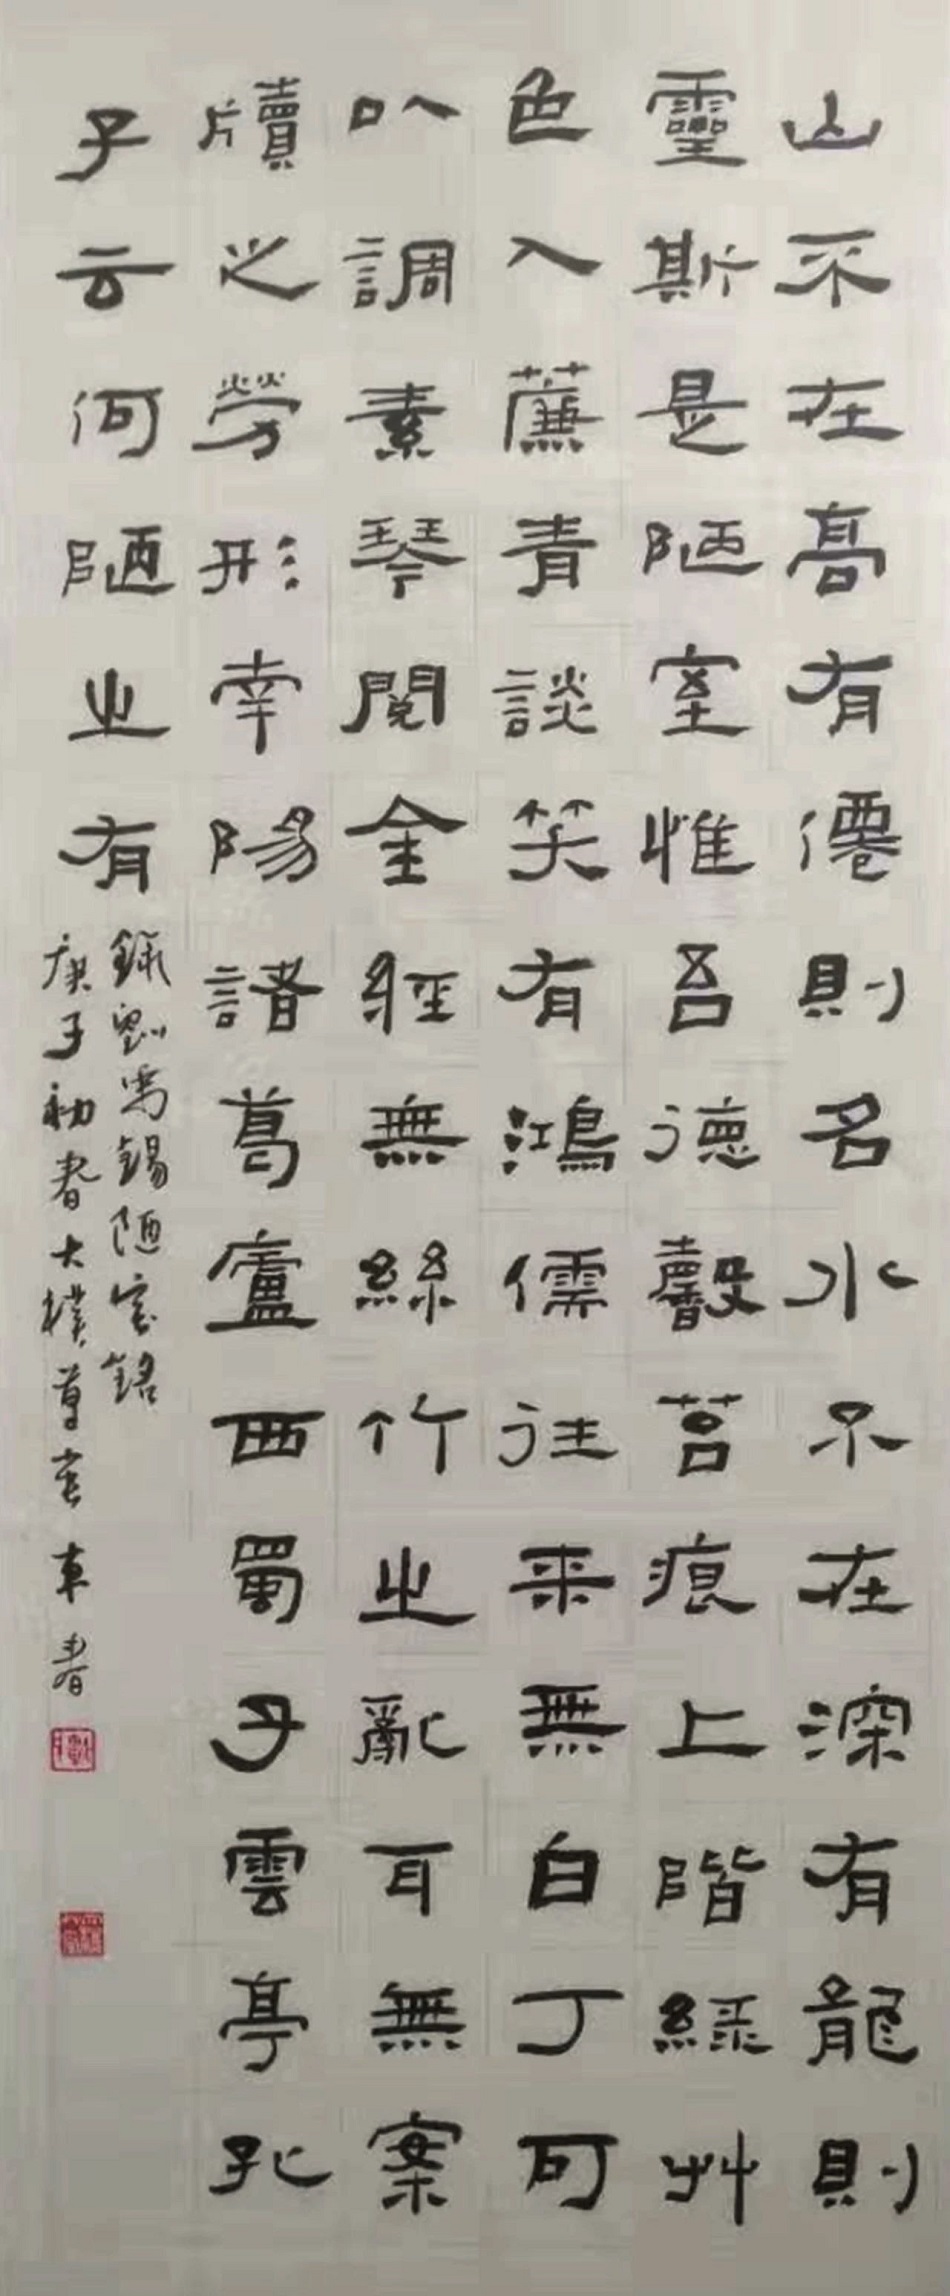 山不在高有僊則名水不在深有龍則
靈斯是陋室惟吾德馨苔痕上階緑艸
色入簾青談笑有鴻儒往来無白丁可
以調素琴閱金經無絲竹之亂耳無案
牘之勞形南陽諸葛廬西蜀子雲亭孔
子云何陋之有
錄劉禹錫陋室銘
庚子初春大樸草堂